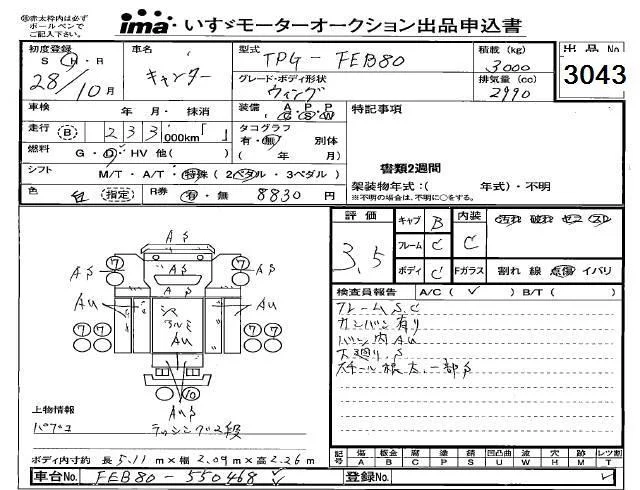 ㊟赤太枠内は必ず
ボールペンで
ご記入下さい。
ima いすゞモーターオークション出品申込書
初度登録 S・H・R 28/10月
車名 キャンター
型式 TPG-FEB80
グレード・ボディ形状 ウィング
積載(kg) 3000
排気量(cc) 2990
出品No 3043
車検 年 月・ 抹消
装備 A/C P/S P/W
特記事項
走行 B 233,000km「 」
タコグラフ 有・無 別体
( 年 月)
燃料 G・D・HV 他( )
書類2週間
シフト M/T・A/T・特殊(2ペダル・3ペダル)
架装物年式:( 年式)・不明
※不明の場合は、不明に○をする。
色 白 (指定) R券 有・無 8830円
評価 3.5
キャブ B
フレーム C
ボディ C
内装 C
汚れ 破れ ヤニ スレ
Fガラス 割れ 線 点傷 イバリ
検査員報告 A/C(✓) B/T( )
フレームS.C
カンバン有り
バン内AU
下廻り.S
スチール根太.一部S
⑦ AS ⑦
AS AS AS
AU シマアルミ AU AU
⑦ ⑦
⑩
AUS
上物情報
パブコ ラッシング2段
ボディ内寸約 長5.11m×幅2.09m×高2.26m
記号 傷A 板金B 腐C 凹P 塗S 錆S 凹凸曲U 波W 穴H 跡M レンズ割T
車台No. FEB80-550468
登録No.